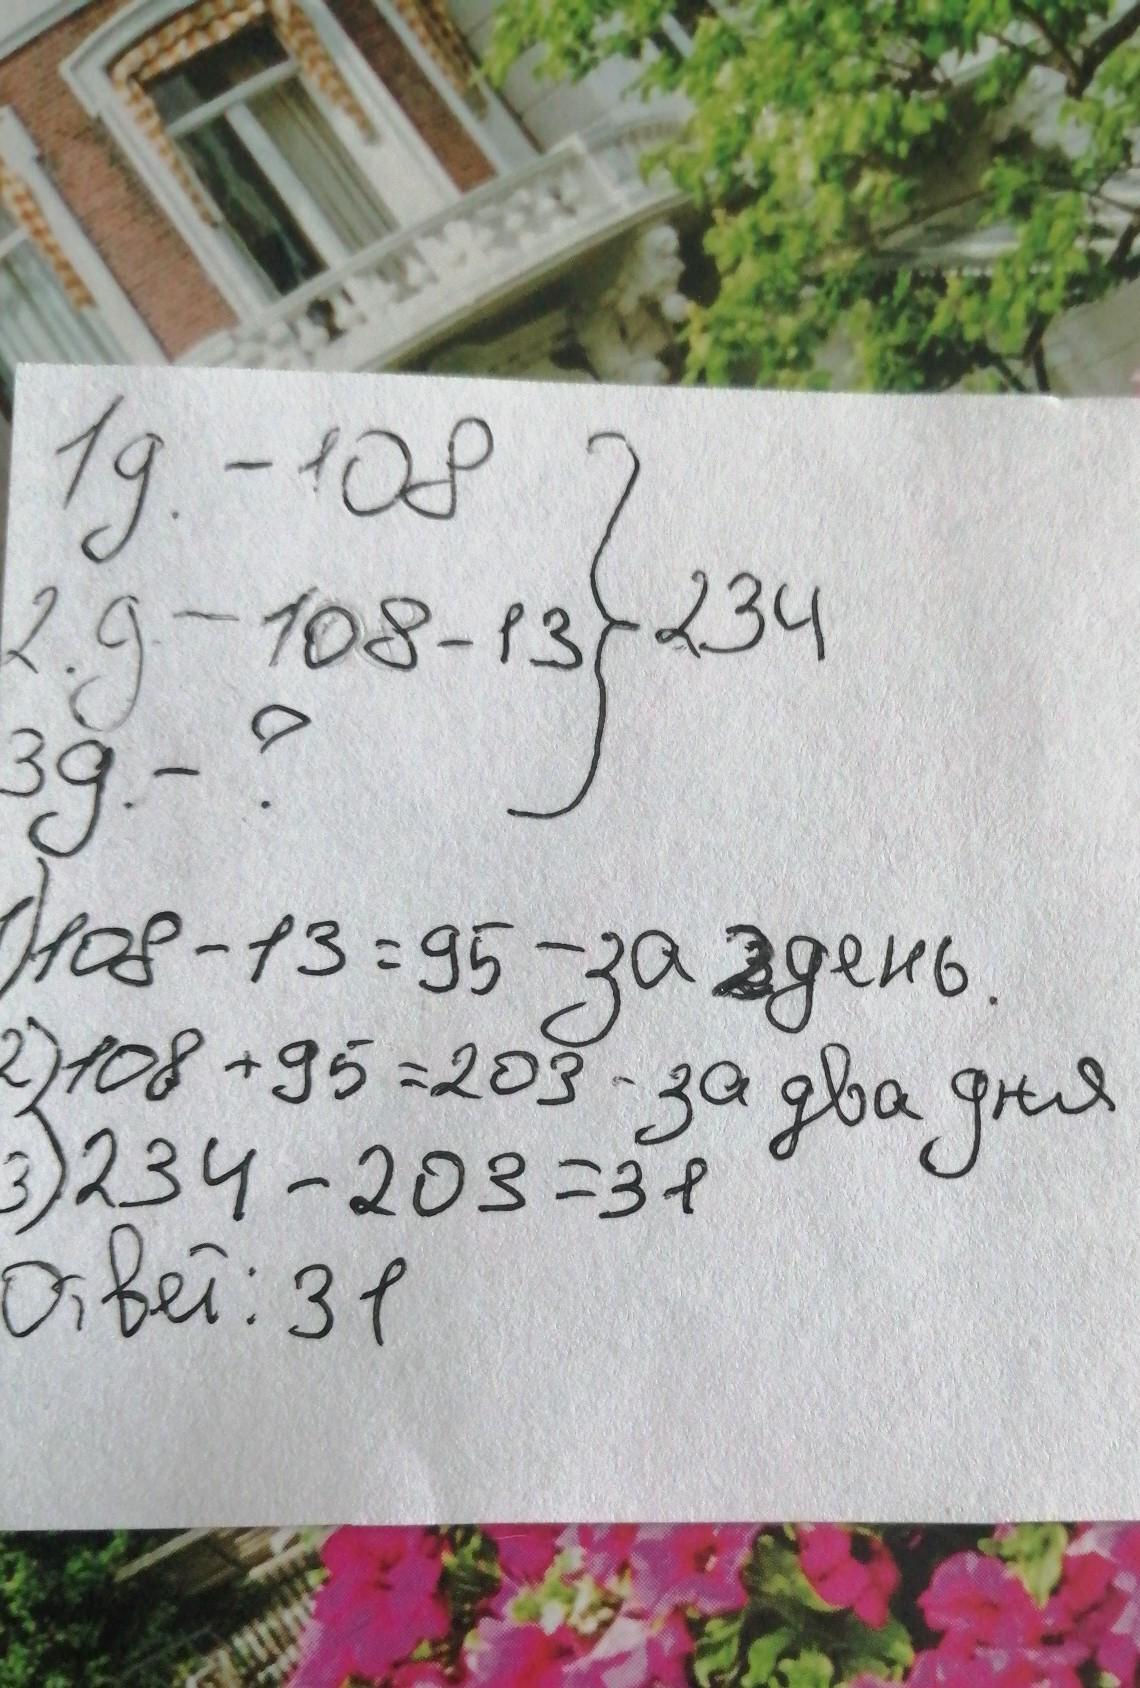 1д. - 108
2.д - 108 - 13 } - 234
3д. - ?
1) 108 - 13 = 95 - за 2 день.
2) 108 + 95 = 203 - за два дня
3) 234 - 203 = 31
Ответ: 31